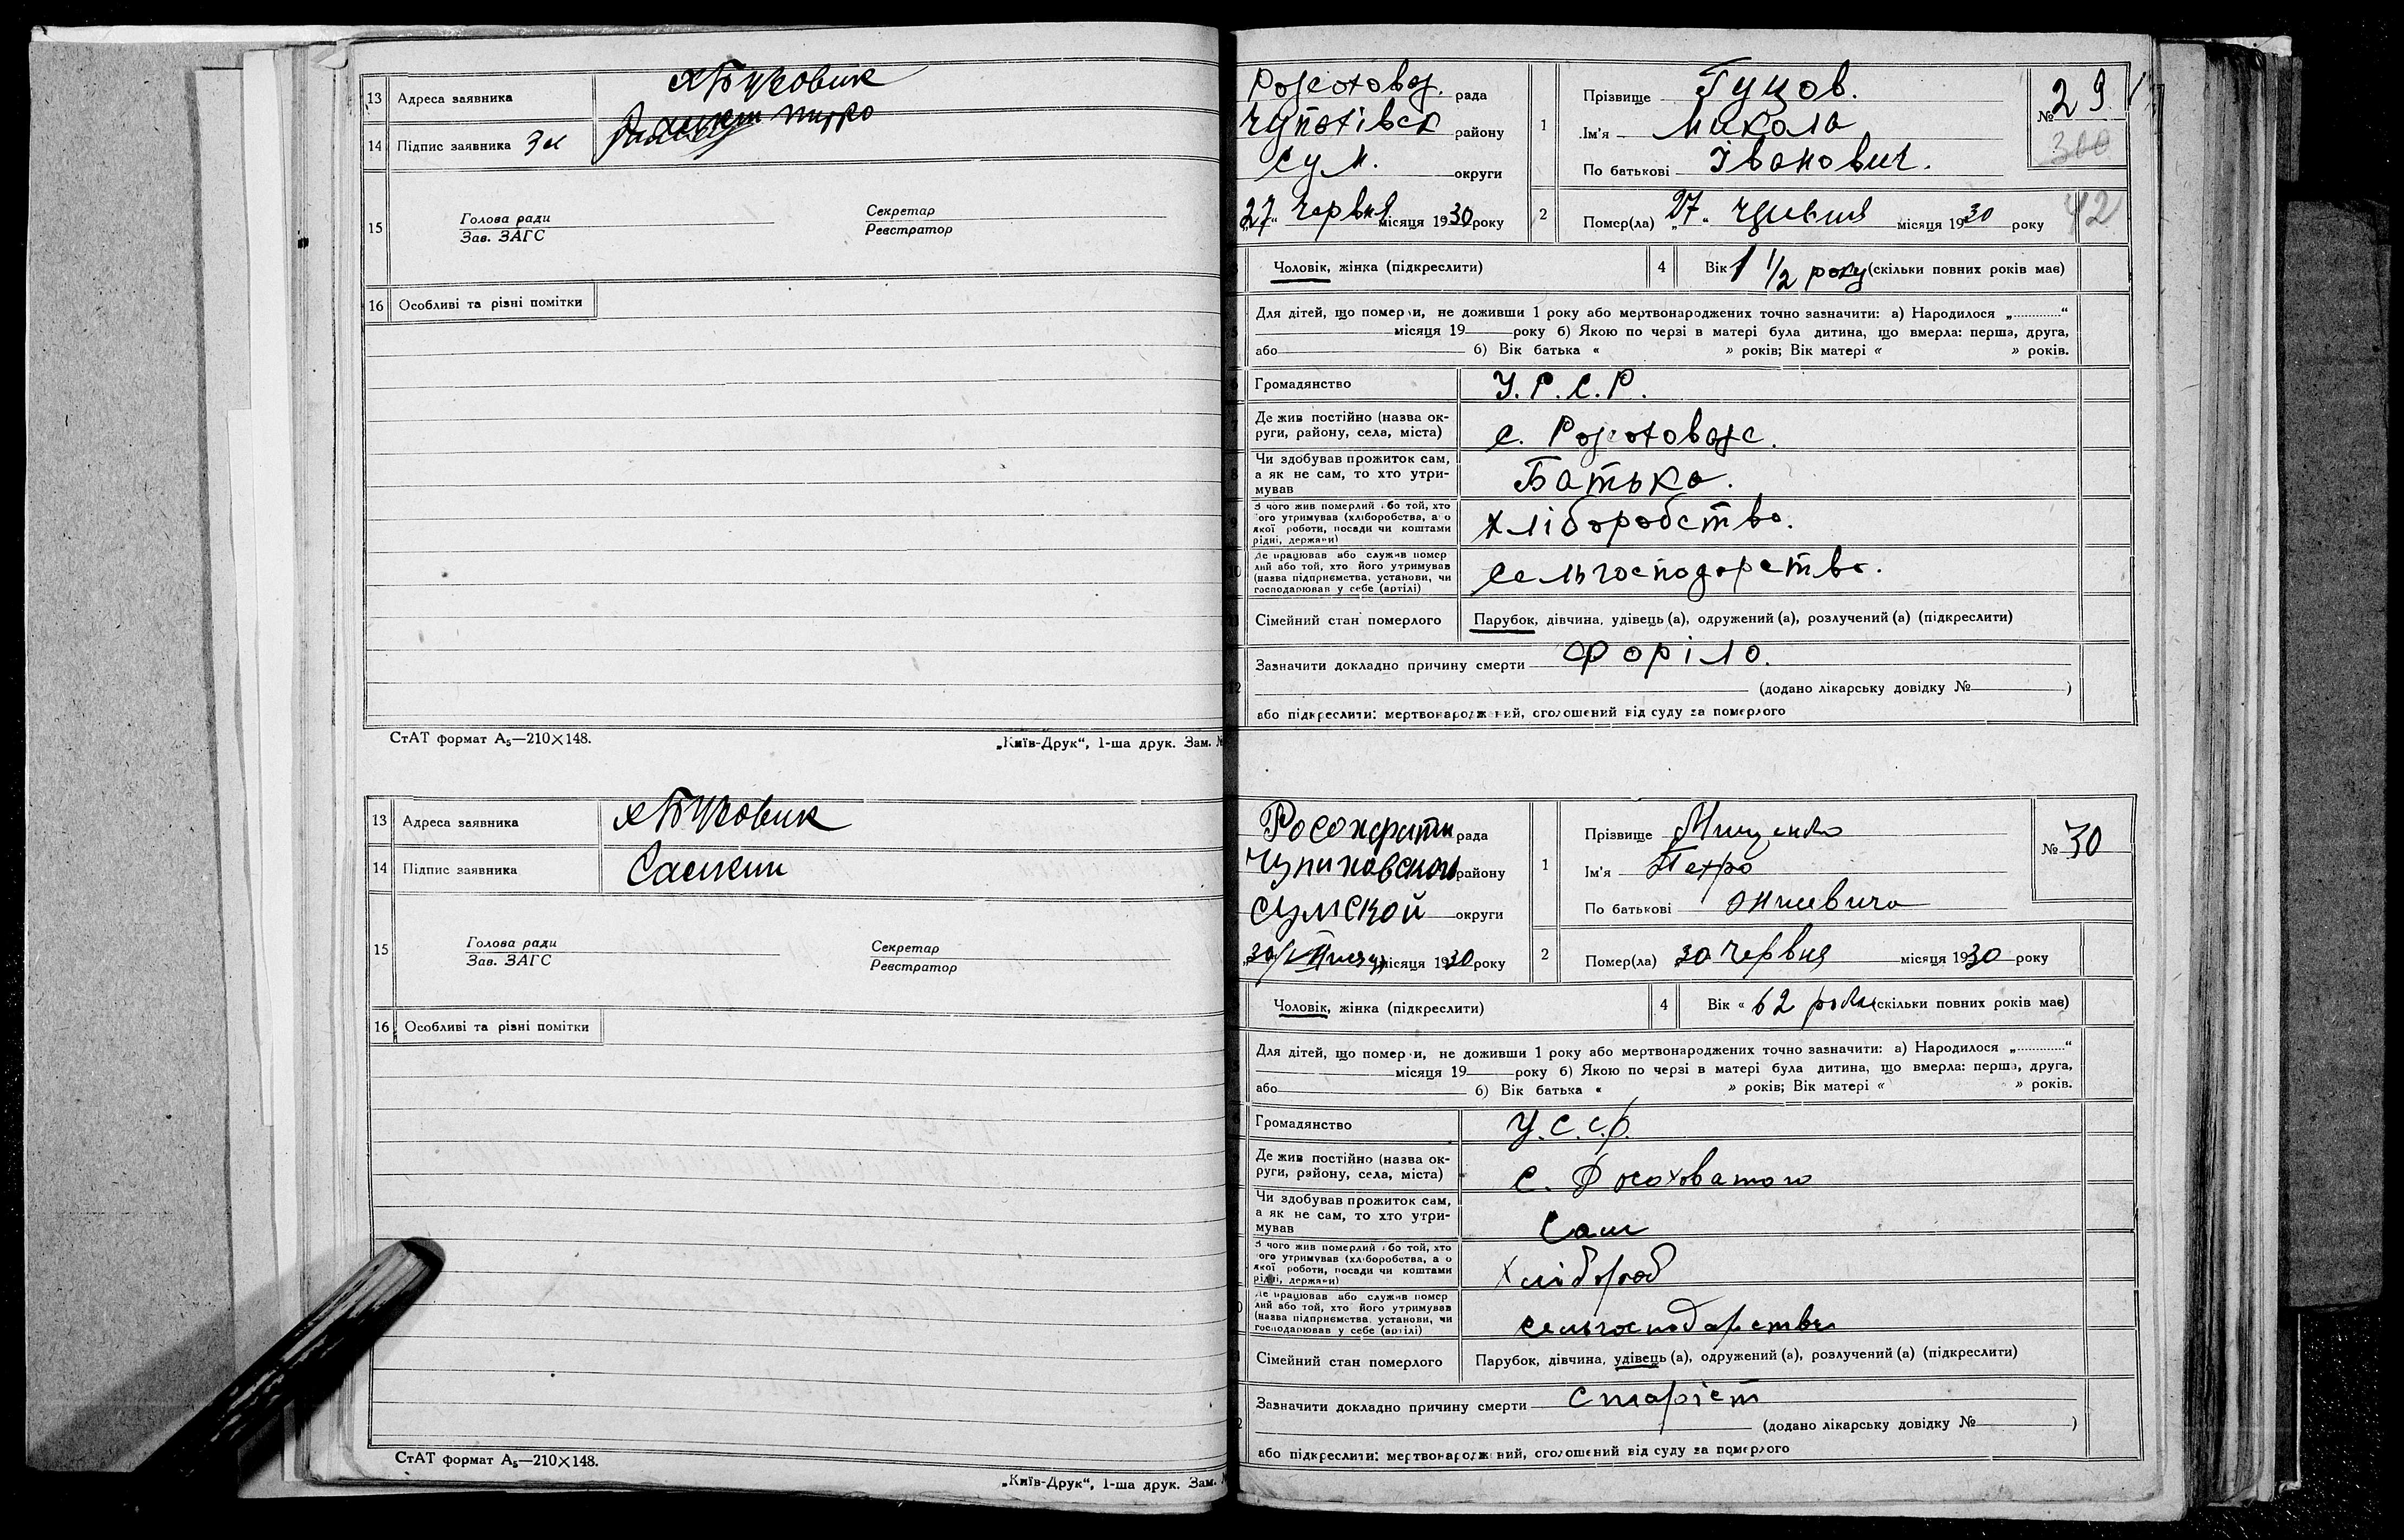 13 Адреса заявника х Бицовик
14 Підпис заявника За
15 Голова ради
Зав. ЗАГС
Секретар
Реєстратор
16 Особливі та різні помітки
СтАТ формат А₅—210×148.
„Київ-Друк“, 1-ша друк. Зам. №
13 Адреса заявника
14 Підпис заявника
15 Голова ради
Зав. ЗАГС
Секретар
Реєстратор
16 Особливі та різні помітки
СтАТ формат А₅—210×148.
„Київ-Друк“, 1-ша друк. Зам. №
рада
району
Сум. округи
„27“ Червня місяця 1930 року
1 Прізвище Гуцов.
Ім'я Микола
По батькові Іванович.
№ 29
300
42
2 Помер(ла) „27“ червня місяця 1930 року
Чоловік, жінка (підкреслити)
4 Вік 1 1/2 року (скільки повних років має)
Для дітей, що померли, не доживши 1 року або мертвонароджених точно зазначити: а) Народилося „............“
місяця 19 року б) Якою по черзі в матері була дитина, що вмерла: перша, друга,
або б) Вік батька « » років; Вік матері « » років.
Громадянство У.Р.С.Р.
Де жив постійно (назва ок-
руги, району, села, міста) с.
Чи здобував прожиток сам,
а як не сам, то хто утри-
мував Батько.
З чого жив померлий або той, хто
його утримував (хліборобства, або
якої роботи, посади чи коштами
рідні, держави) Хліборобство.
Де працював або служив помер
лий або той, хто його утримував
(назва підприємства, установи, чи
господарював у себе (артілі) Сельгосподарство.
Сімейний стан померлого Парубок, дівчина, удівець (а), одружений (а), розлучений (а) (підкреслити)
Зазначити докладно причину смерти Форіло.
12 (додано лікарську довідку № )
або підкреслити: мертвонароджений, оголошений від суду за померлого
рада
району
Сумской округи
місяця 1930 року
1 Прізвище Мищенко
Ім'я Петро
По батькові
№ 30
2 Помер(ла) 30 червня місяця 1930 року
Чоловік, жінка (підкреслити)
4 Вік « 62 роки (скільки повних років має)
Для дітей, що померли, не доживши 1 року або мертвонароджених точно зазначити: а) Народилося „............“
місяця 19 року б) Якою по черзі в матері була дитина, що вмерла: перша, друга,
або б) Вік батька « » років; Вік матері « » років.
Громадянство У.С.С.Р.
Де жив постійно (назва ок-
руги, району, села, міста) с. Росоховатого
Чи здобував прожиток сам,
а як не сам, то хто утри-
мував Сам
З чого жив померлий або той, хто
його утримував (хліборобства, або
якої роботи, посади чи коштами
рідні, держави) Хлібороб
Де працював або служив помер
лий або той, хто його утримував
(назва підприємства, установи, чи
господарював у себе (артілі) Сельгосподарство
Сімейний стан померлого Парубок, дівчина, удівець (а), одружений (а), розлучений (а) (підкреслити)
Зазначити докладно причину смерти Старіст
(додано лікарську довідку № )
або підкреслити: мертвонароджений, оголошений від суду за померлого